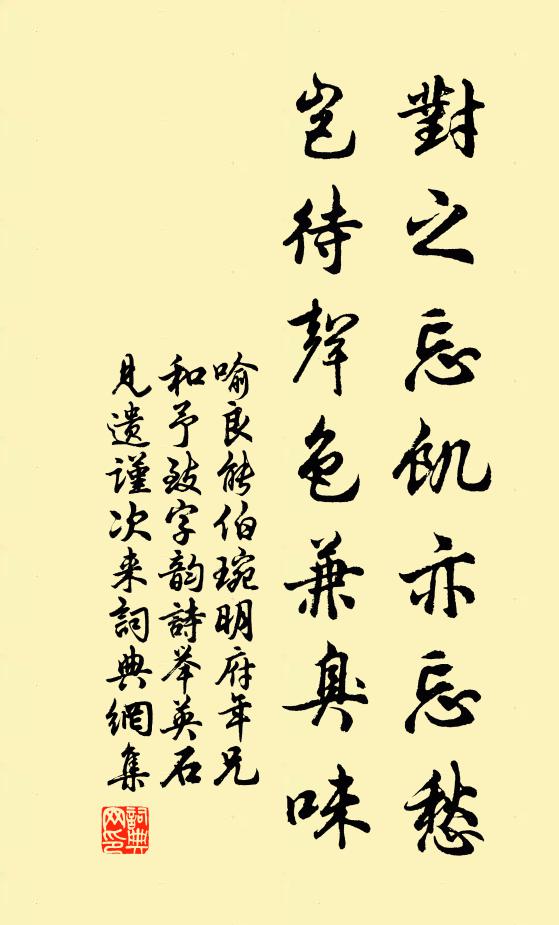 對之忘飢亦忘愁
豈待聲色兼臭味
喻良能伯琬明府年兄
和予致字韵詩举英石
見遗謹次来詞典網集
詞典网印